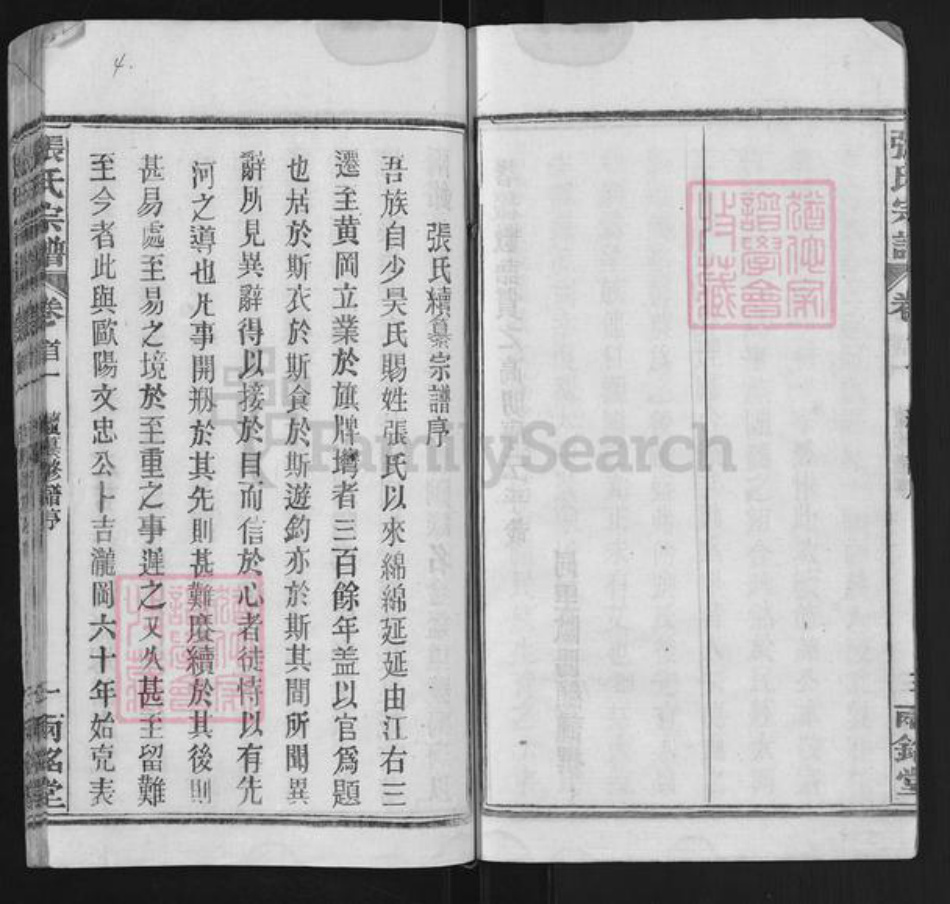 張氏宗譜
卷
三
兩銘堂
猶他家
譜學會
收藏
張氏續纂宗譜序
吾族自少昊氏賜姓張氏以來綿綿延延由江右三
遷至黃岡立業於旗牌塆者三百餘年盖以官爲題
也居於斯衣於斯食於斯遊鈞亦於斯其間所聞異
辭所見異辭得以接於目而信於心者徒恃以有先
河之導也凡事開刱於其先則甚難賡續於其後則
甚易處至易之境於至重之事遲之又久甚至留難
至今者此與歐陽文忠公卜吉瀧岡六十年始克表
張氏宗譜
卷首一
續纂修譜序
一
兩銘堂
猶他家
譜學會
收藏
4.
FamilySearch